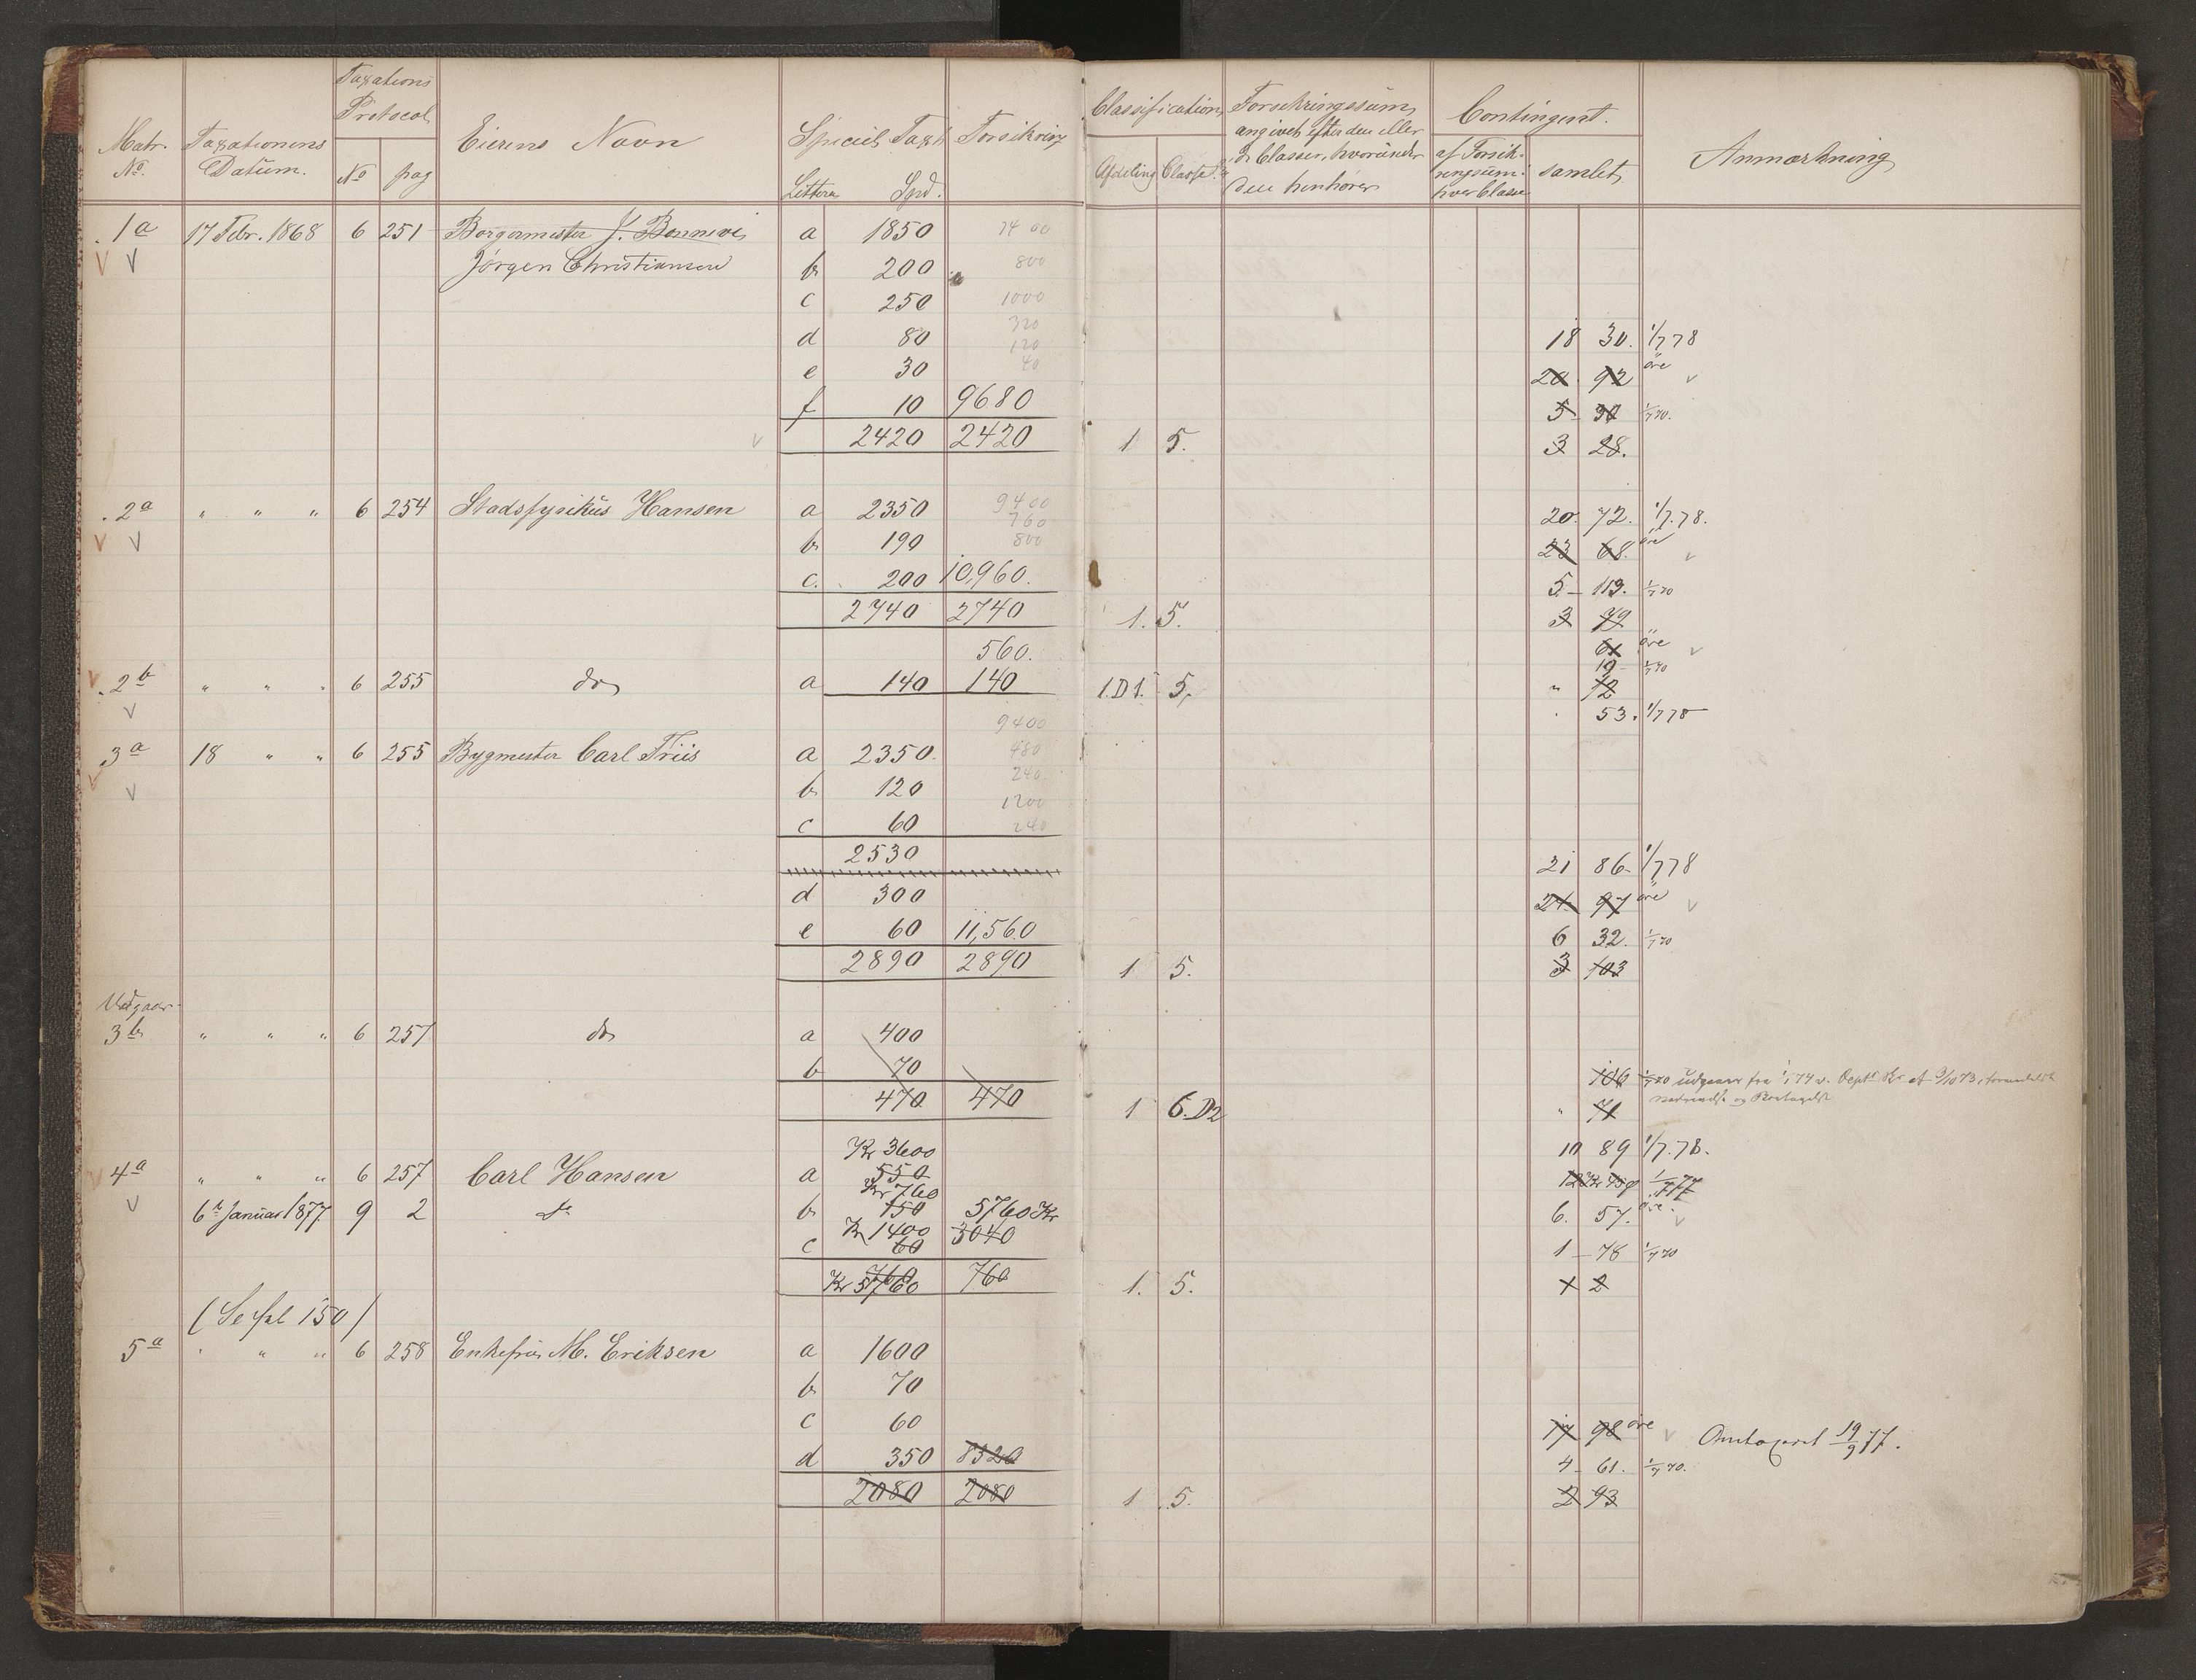 Matr. No. Taxationens Datum. Taxations Protocol No pag Eierens Navn Speciel Taxt Littera Spd. Forsikring Classification Afdeling Classe Forsikringssum, angivet efter den eller de Classer, hvorunder den henhører Contingent. af Forsikringssum hver Classe samlet, Anmærkning
1a 17 Febr. 1868 6 251 Borgermester J. Bonnevie a 1850 7400
Jørgen Christiansen b 200 800
c 250 1000
d 80 320 18 30. 1/7 78
e 30 120 40 20 92 öre
f 10 9680 5 30 1/7 70.
2420 2420 1 5. 3 28.
2a " " " 6 254 Stadsfysikus Hansen a 2350 9400 20. 72. 1/7. 78.
b 190 760 800 23 68. öre
c. 200 10,960. 5 113. 1/7 70
2740 2740 1. 5. 3 79
560. 61 öre
19 1/7 70
2b " " " 6 255 do a 140 140 1.D1. 5, " 12
9400 53. 1/7 78
3a 18 " " 6 255 Bygmester Carl Friis a 2350. 480
b 120 240 1200
c 60 240
2530 21 86. 1/7 78
d 300 21 97 öre
e 60 11,560 6 32. 1/7 70
2890 2890 1 5. 3 103
Udgaar
3b " " " 6 257 do a 400
b 70 106 1/7 70 udgaar fra 1/1 74 v. Dept Skr af 3/10 73, formedelst
470 470 1 6. D2 " 71 nedrivelse og Borttagelse
Kr 3600 10 89 1/7. 78.
4a " " " 6 257 Carl Hansen a 550
Kr 760
6te Januar 1877 9 2 do b 150 5760 Kr 6. 57. öre
Kr 1400 3040
c 60 1 78 1/7 70
760
Kr 5760 760 1. 5. 1 2
(Se fol 150)
5a " " " 6 258 Enkefru M. Eriksen a 1600
b 70
c 60 17 98 öre Omtaxeret 19/9 77.
d 350 8320 4 61. 1/7 70.
2080 2080 1 5. 2 93